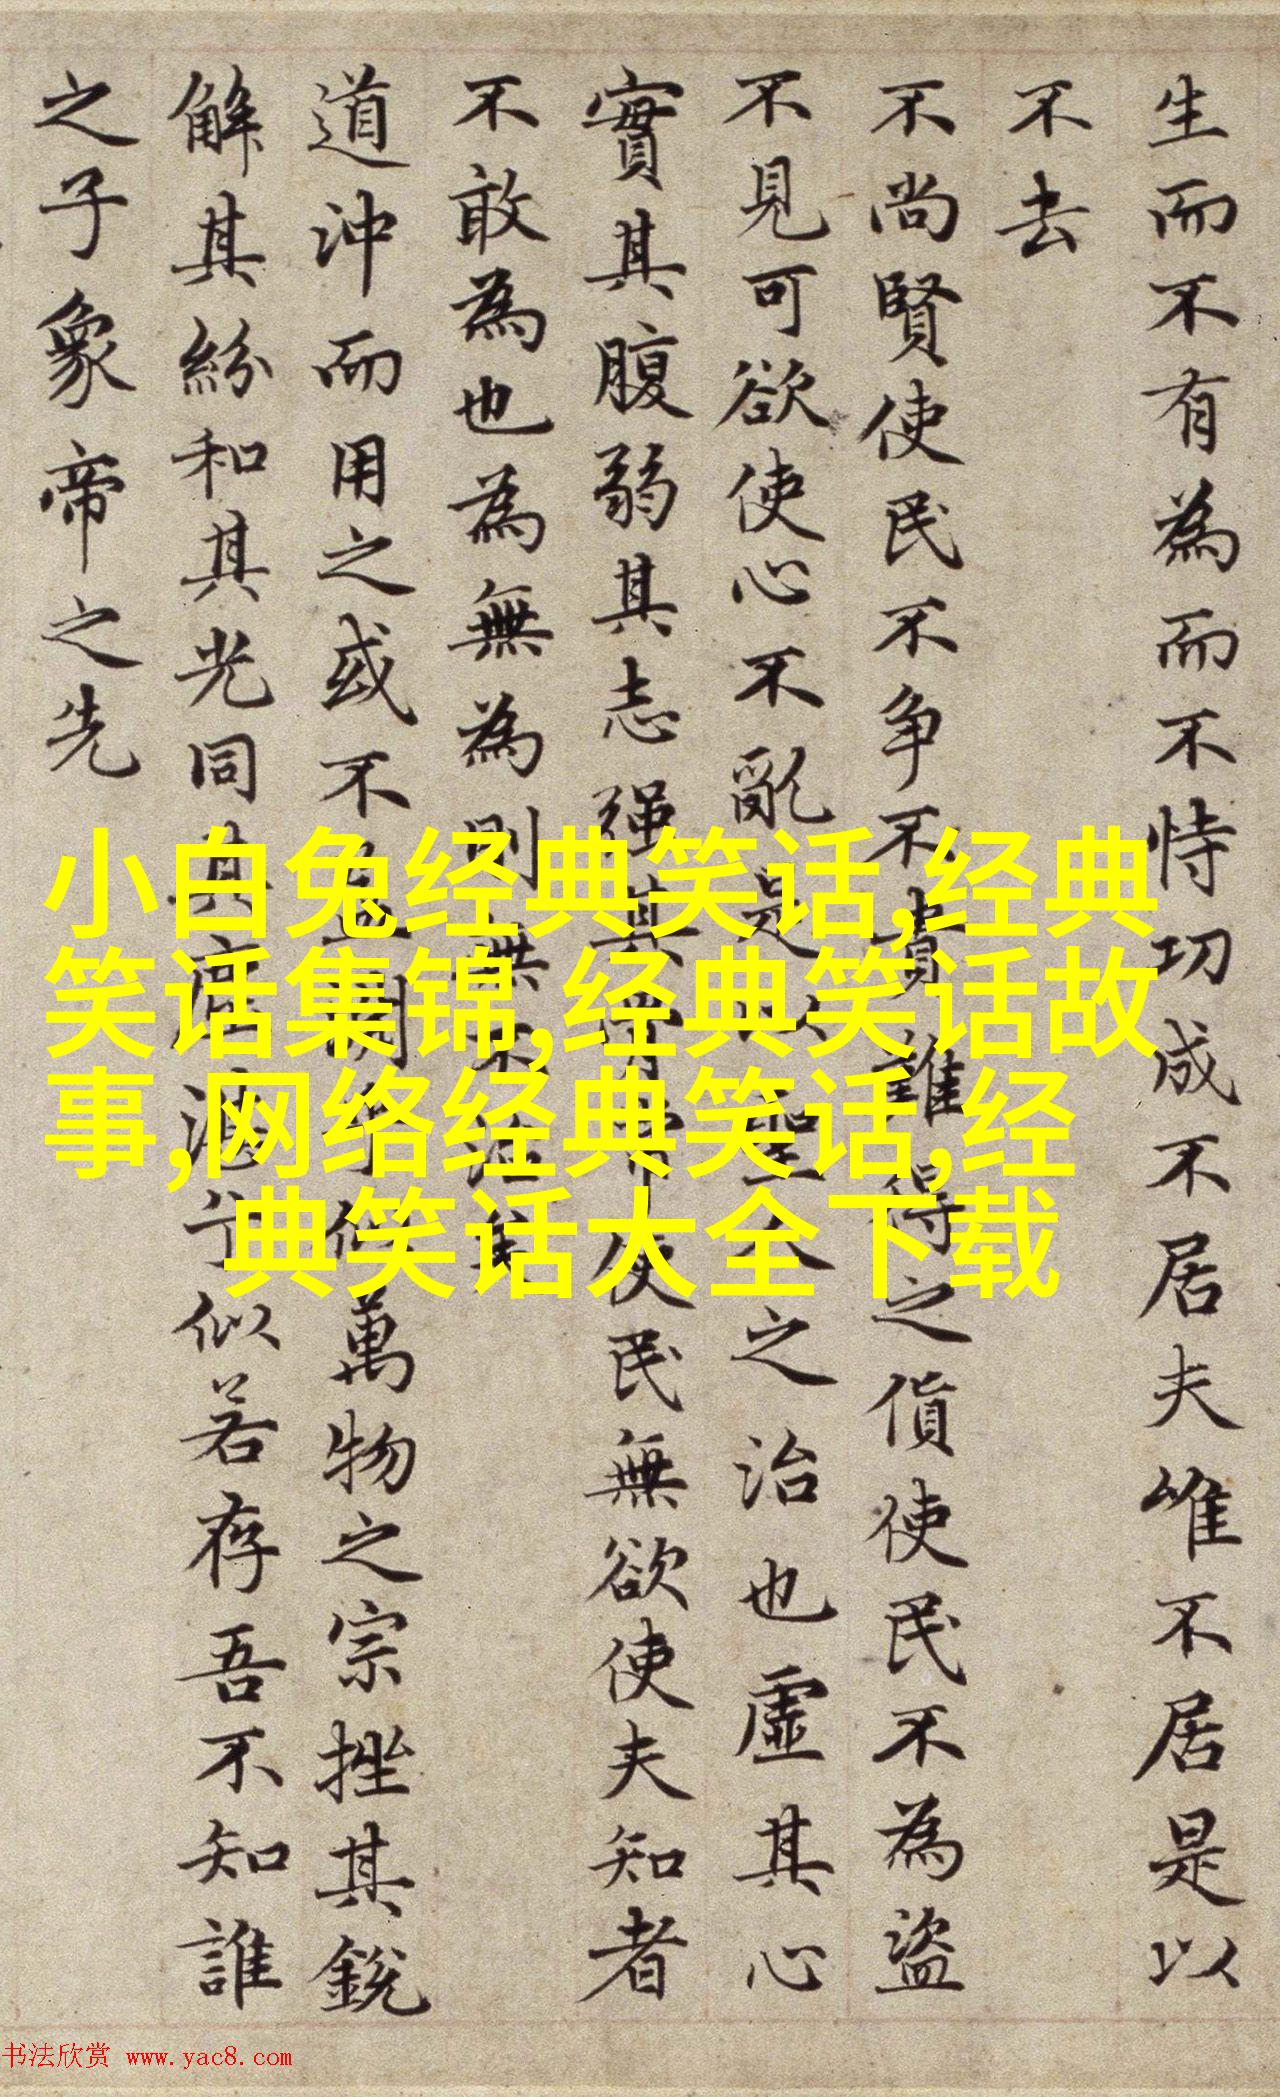 生而不有為而不恃功成不居夫唯不居是以
不去
不尚賢使民不争不貴難得之貨使民不為盜
不見可欲使心不亂是以聖人之治也虛其心
實其腹弱其志强其骨常使民無欲使夫知者
不敢為也為無為則無不治矣
道沖而用之或不盈淵乎似萬物之宗挫其銳
解其紛和其光同其塵湛兮似若存吾不知誰
之子象帝之先
小白兔经典笑话,经典
笑话集锦,经典笑话故
事,网络经典笑话,经
典笑话大全下载
书法欣赏 www.yac8.com